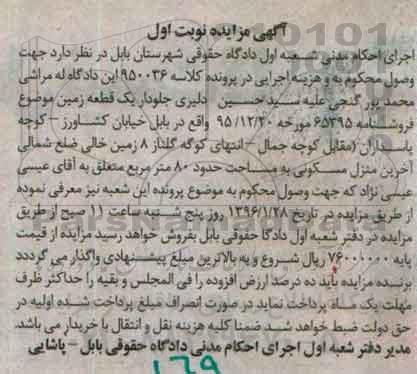 آگهی مزایده نوبت اول
اجرای احکام مدنی شعبه اول دادگاه حقوقی شهرستان بابل در نظر دارد جهت
وصول محکوم به و هزینه اجرایی در پرونده کلاسه ۹۵۰۰۳۶ این دادگاه له مراشی
محمد پور گنجی علیه سید حسین دلیری جلودار یک قطعه زمین موضوع
فروشنامه ۶۵۳۹۵ مورخه ۹۵/۱۲/۲۰ واقع در بابل خیابان کشاورز – کوچه
پاسداران (مقابل کوچه جمال – انتهای کوگه گلناز ۸ زمین خالی ضلع شمالی
آخرین منزل مسکونی به مساحت حدود ۸۰ متر مربع متعلق به آقای عیسی
عیسی نژاد که جهت وصول محکوم به موضوع پرونده این شعبه نیز معرفی نموده
از طریق مزایده در تاریخ ۱۳۹۶/۱/۲۸ روز پنج شنبه ساعت ۱۱ صبح از طریق
مزایده در دفتر شعبه اول دادگا حقوقی بابل بفروش خواهد رسید مزایده از قیمت
پایه ۷۶۰۰۰۰۰۰ ریال شروع و به بالاترین مبلغ پیشنهادی واگذار می گرددد
برنده مزایده باید ده درصد ارزش افزوده را فی المجلس و بقیه را حداکثر ظرف
مهلت یک ماه پرداخت نماید در صورت انصراف مبلغ پرداخت شده اولیه در
حق دولت ضبط خواهد شد ضمنا کلیه هزینه نقل و انتقال با خریدار می باشد.
مدیر دفتر شعبه اول اجرای احکام مدنی دادگاه حقوقی بابل – پاشایی
۱۶۹